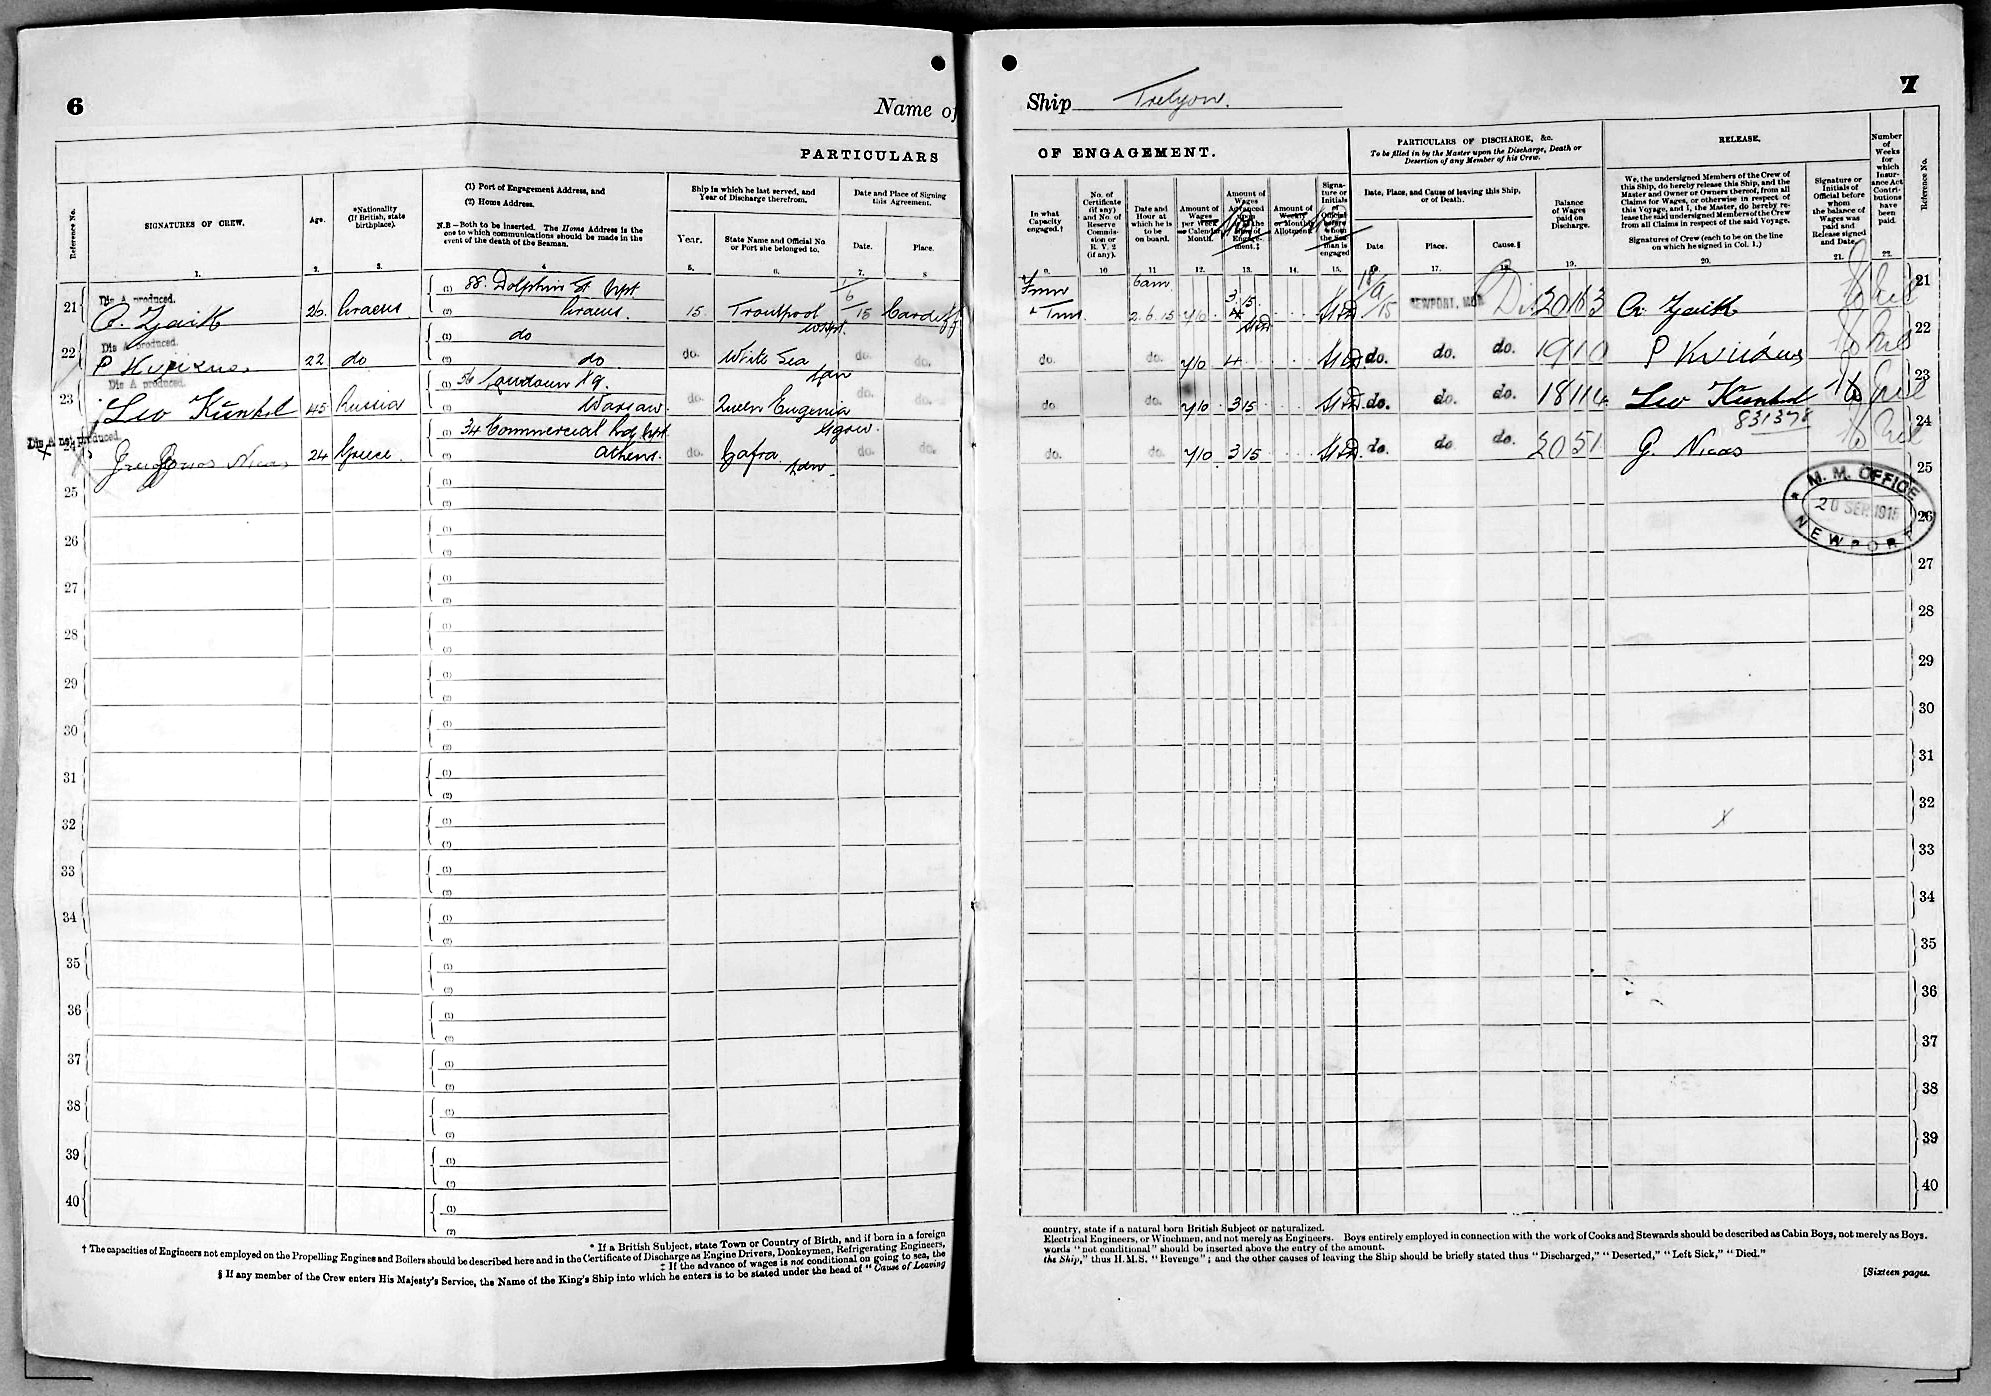 6
Name of
PARTICULARS
Reference No.
SIGNATURES OF CREW.
Age.
*Nationality
(If British, state
birthplace).
(1) Port of Engagement Address, and
(2) Home Address.
N.B—Both to be inserted. The Home Address is the
one to which communications should be made in the
event of the death of the Seaman.
Ship in which he last served, and
Year of Discharge therefrom.
Year.
State Name and Official No
or Port she belonged to.
Date and Place of Signing
this Agreement.
Date.
Place.
1. 2. 3. 4 5. 6. 7. 8
Dis A produced.
(1) 88. Dolphin St Npt 1/6
21 26 15. Troutpool 15 Cardiff
Dis A produced.
(1) do
22 P 22 do (2) do do. White Sea do. do.
Dis A produced.
(1) 56
23 Leo Kunkel 45 Russia (2) Warsaw do. Queen Eugenia do. do.
Dis A not produced.
(1) 34 Commercial Rd, Npt
24 Nicas 24 Greece. (2) Athens. do. Gafsa do. do.
25
26
27
28
29
30
31
32
33
34
35
36
37
38
39
40
* If a British Subject, state Town or Country of Birth, and if born in a foreign
† The capacities of Engineers not employed on the Propelling Engines and Boilers should be described here and in the Certificate of Discharge as Engine Drivers, Donkeymen, Refrigerating Engineers,
‡ If the advance of wages is not conditional on going to sea, the
§ If any member of the Crew enters His Majesty's Service, the Name of the King's Ship into which he enters is to be stated under the head of "Cause of Leaving
7
Ship Trelyon.
OF ENGAGEMENT.
PARTICULARS OF DISCHARGE, &c.
To be filled in by the Master upon the Discharge, Death or
Desertion of any Member of his Crew.
RELEASE.
Number
of
Weeks
for
which
Insur-
ance Act
Contri-
butions
have
been
paid.
Reference No.
In what
Capacity
engaged.†
No. of
Certificate
(if any)
and No. of
Reserve
Commis-
sion or
R. V. 2
(if any).
Date and
Hour at
which he is
to be
on board.
Amount of
Wages
per Week
or Calendar
Month.
Amount of
Wages
Advanced
upon
the
time of
Engage-
ment.‡
Amount of
Weekly
or Monthly
Allotment
Signa-
ture or
Initials
of
Official
before
whom
the Sea-
man is
engaged
Date, Place, and Cause of leaving this Ship,
or of Death.
Date
Place.
Cause.§
Balance
of Wages
paid on
Discharge.
We, the undersigned Members of the Crew of
this Ship, do hereby release this Ship, and the
Master and Owner or Owners thereof, from all
Claims for Wages, or otherwise in respect of
this Voyage, and I, the Master, do hereby re-
lease the said undersigned Members of the Crew
from all Claims in respect of the said Voyage.
Signatures of Crew (each to be on the line
on which he signed in Col. 1.)
Signature or
Initials of
Official before
whom
the balance of
Wages was
paid and
Release signed
and Date.
9. 10 11 12. 13. 14. 15. 16. 17. 18. 19. 20. 21. 22.
6am 18/9 21
2.6.15 7/10 3 15 15 NEWPORT, MON Dis 20 16 3
22
do. do. 7/10 4 do. do. do. 19 1 0 P
23
do do. 7/10 3 15 do. do. do. 18 11 4 Leo Kunkel
831378 24
do. do. 7/10 3 15 do. do. do. 20 5 1 G. Nicas
25
M. M. OFFICE
20 SEP. 1915
NEWPORT
26
27
28
29
30
31
32
33
34
35
36
37
38
39
40
country, state if a natural born British Subject or naturalized.
Electrical Engineers, or Winchmen, and not merely as Engineers. Boys entirely employed in connection with the work of Cooks and Stewards should be described as Cabin Boys, not merely as Boys.
words "not conditional" should be inserted above the entry of the amount.
the Ship," thus H.M.S. "Revenge"; and the other causes of leaving the Ship should be briefly stated thus "Discharged," "Deserted," "Left Sick," "Died."
[Sixteen pages.